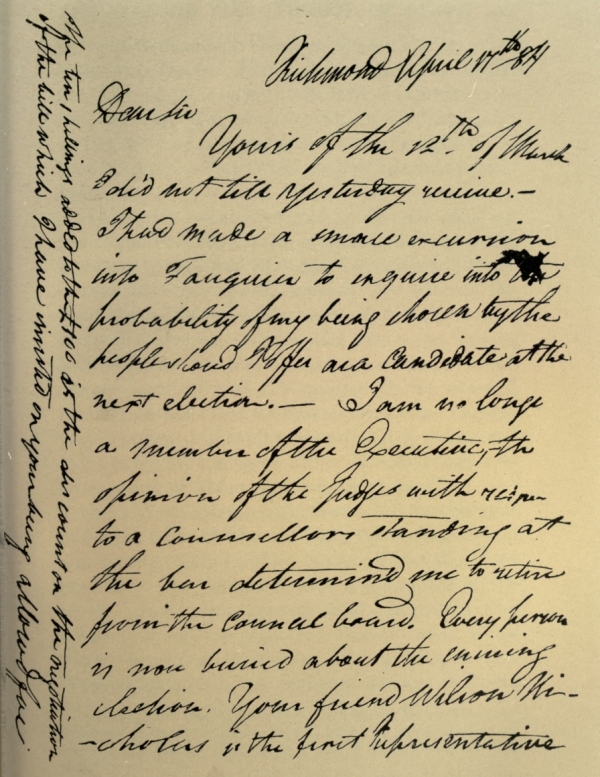 Richmond April 17th 84
Dear sir
Yours of the 12th of March
I did not till yesterday receive.—
I had made a small excursion
into Fauquier to enquire into the
probability of my being chosen by the
people shoud I offer as a candidate at the
next election.— I am no longer
a member of the Executive, the
opinion of the Judges with respect
to a Counsellors standing at
the bar determind me to retire
from the Council board. Every person
is now buried about the ensuing
election. Your friend Wilson Ni-
-cholas is the first Representative
The ten shillings added to the £100 is the discount on the negotiation
of the bill which I have insisted on your being allowed for